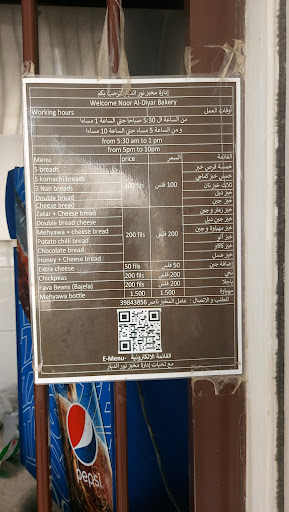 إدارة مخبز نور الديار ترحب بكم
Welcome Noor Al-Diyar Bakery
Working hours أوقات العمل
من الساعة ال 5:30 صباحا حتى الساعة 1 مساءا
و من الساعة 5 مساء حتى الساعة 10 مساءا
from 5:30 am to 1 pm
from 5pm to 10pm
Menu price السعر القائمة
5 breads خمسة قرص خبز
5 komachi breads خمس خبز كماجي
3 Nan breads 100 fils 100 فلس ثلاث خبز نان
Double bread خبز دبل
Cheese bread خبز جبن
Zatar + Cheese bread خبز زعتر و جبن
Double bread cheese خبز دبل جبن
Mehyawa + cheese bread 200 fils 200 فلس خبز مهياوة و جبن
Potato chilli bread خبز آلو
Chocolate bread خبز كاكاو
Honey + Cheese bread خبز عسل
Extra cheese 50 fils 50 فلس إضافة جبن
Chickpeas 200 fils 200 فلس نخي
Fava Beans (Bajela) 200 fils 200 فلس باجلا
Mehyawa bottle 1.500 1.500 مهياوة
للطلب و الاتصال : عامل المخبز ناصر 39843856
القائمة الالكترونية E-Menu-
مع تحيات إدارة مخبز نور الديار
pepsi